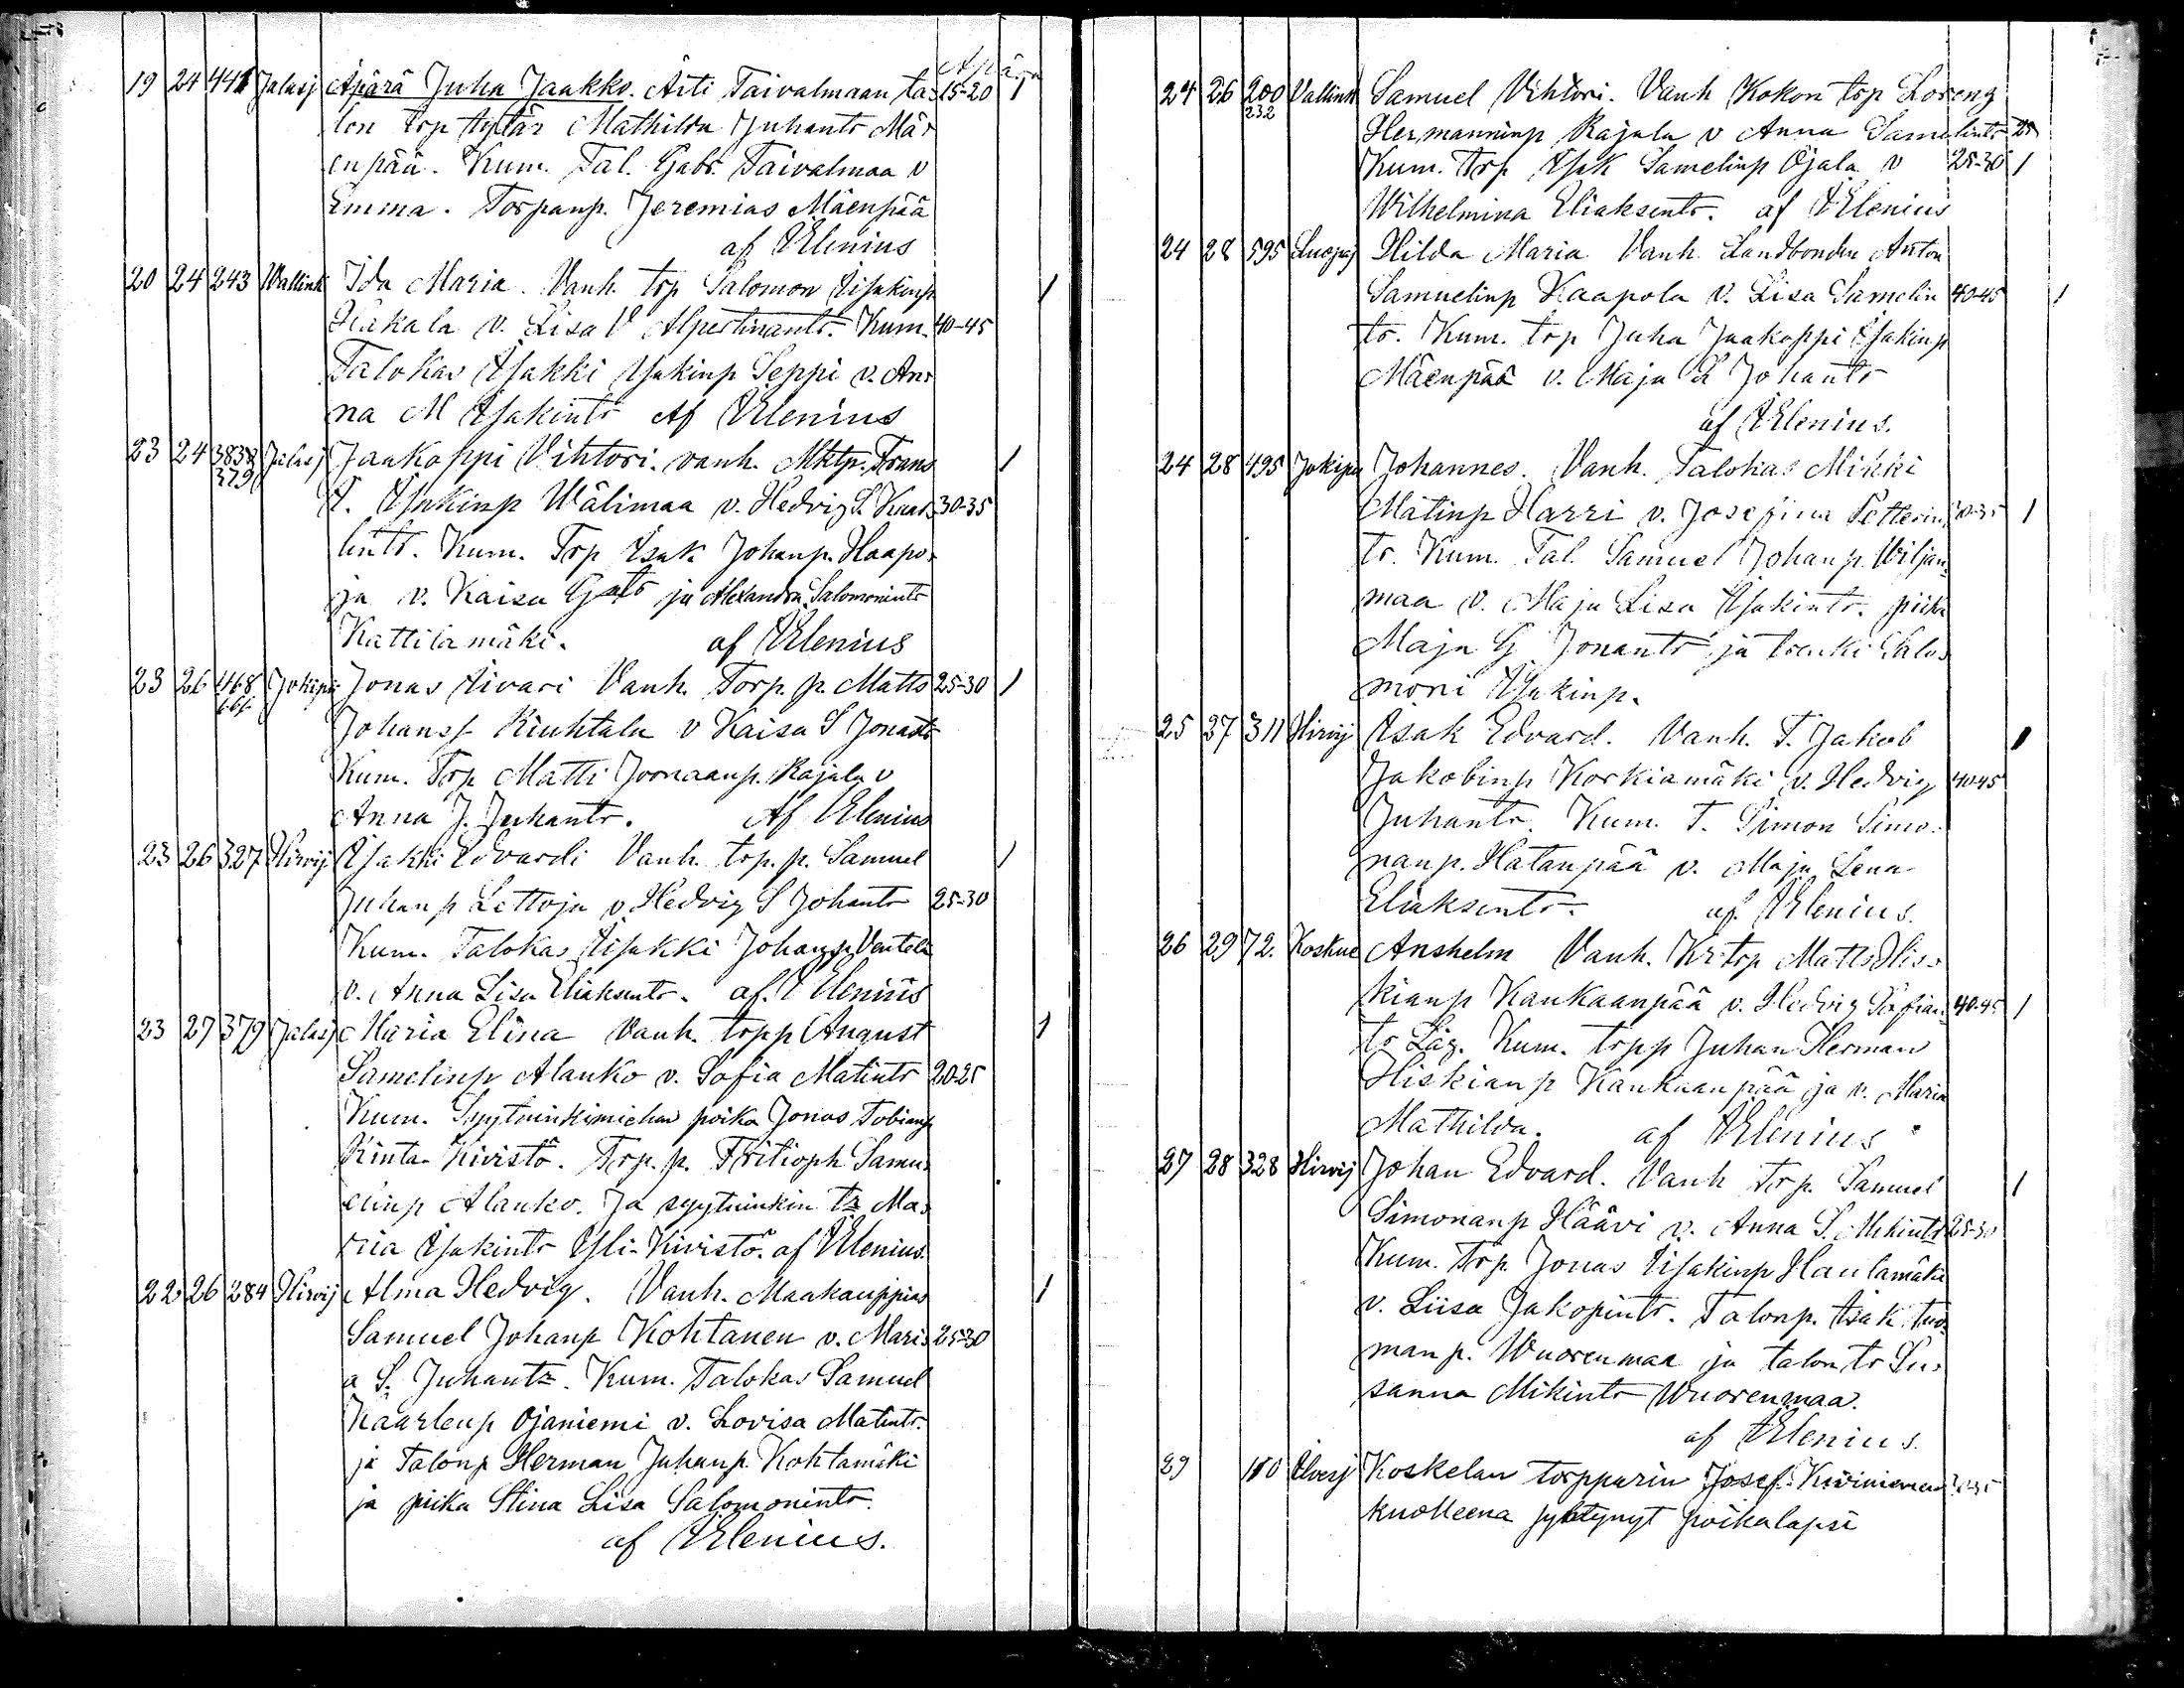 Apärä
19 24 441 Jalasj Äpärä Juha Jaakko. Äiti Taivalmaan ta= 15-20 1
lon trp tytär Mathilda Juhantr Mä=
enpää. Kum. Tal. Gabr. Taivalmaa v
Emma. Torpanp. Jeremias Mäenpää
af Elenius
20 24 243 Wallink Ida Maria. Vanh. trp Salomon Iisakinp 1
v. Lisa V Alpertinantr. Kum. 40-45
Talokas Isakki Isakinp Seppi v. An=
na M Isakintr Af Elenius
23 24 383 Jalasj Jaakoppi Vihtori. vanh. Mktp. Frans 1
379
I. Isakinp Wälimaa v. Hedvig S. Kaar= 30-35
lintr. Kum. Trp Isak Johanp. Haapo=
ja v. Kaisa Gtr ja Alexandra Salomonintr
Kattilamäki. af Elenius
23 26 468 Jokipij Jonas Iivari Vanh. Torp. p. Matts 25-30 1
Johansp Riuhtala v Kaisa S Jonastr
Kum. Trp Matti Joonaanp. Rajala v
Anna J. Juhantr. Af Elenius
23 26 327 Hirvij Isakki Edvardi Vanh. trp. p. Samuel 1
Juhanp Lettoja v. Hedvig S Johantr 25-30
Kum. Talokas Iisakki Johanp. Ventelä
v. Anna Lisa Eliaksentr. af. Elenius
23 27 379 Jalasj Maria Elina Vanh. trpp August 1
Samelinp Alanko v. Sofia Matintr 20-25
Kum. Syytninkimiehen poika Jonas Tobianp
Rinta-Kivistö. Trp. p. Fritioph Samu=
elinp Alanko. Ja syytninkin tr Ma=
ria Isakintr Yli-Kivistö. af Elenius.
22 26 284 Hirvij Alma Hedvig. Vanh. Maakauppias 1
Samuel Johanp Kohtanen v. Mari= 25-30
a S. Juhantr. Kum. Talokas Samuel
Kaarlenp Ojaniemi v. Lovisa Matintr.
ja Talonp Herman Juhanp. Kohtamäki
ja piika Stina Lisa Salomonintr.
af Elenius.
24 26 200 Vallink Samuel Vihtori. Vanh Kokon trp Loreng
232
Hermanninp Rajala v Anna Samelintr 25
Kum. Trp Isak Samelinp Ojala v 25-30 1
Wilhelmina Eliaksentr. af Elenius
24 28 595 Luopaj Hilda Maria Vanh. Landbonden Anton
Samuelinp Kaapola v. Lisa Samelin 40-45 1
tr. Kum. trp Juha Jaakoppi Isakinp
Mäenpää v. Maja L Johantr
af Elenius.
24 28 495 Jokipij Johannes. Vanh. Talokas Mikki
Matinp Harri v. Josefiina Petterin 1
tr. Kum. Tal. Samuel Johanp. Wiljan=
maa v. Maja Lisa Isakintr. piika
Maja G Jonantr ja trenki Salo=
moni Isakinp.
25 27 311 Hirvij Isak Edvard. Vanh. T. Jakob 1
Jakobinp Korkiamäki v. Hedvig 40-45
Juhantr. Kum. T. Simon Simo=
nanp. Hatanpää v. Maja Lena
Eliaksentr. af. Elenius.
26 29 72. Koskue Anshelm Vanh. Kr trp Matts His=
kianp Kankaanpää v. Hedvig Sofian= 40-45 1
tr Läg. Kum. trpp Juhan Herman
Hiskianp Kankaanpää ja v. Maria
Mathilda. af Elenius
27 28 328 Hirvij Johan Edvard. Vanh Trp. Samuel 1
Simonanp Häävi v. Anna S. Mikintr 25-30
Kum. Trp. Jonas Iisakinp Haulamäki
v. Liisa Jakopintr. Talonp. Isak Tuo=
manp. Wuorenmaa ja talon tr Su=
sanna Mikintr Wuorenmaa.
af Elenius.
29 110 Ilvesj Koskelan torpparin Josef Kiviniemen
kuolleena syntynyt poikalapsi